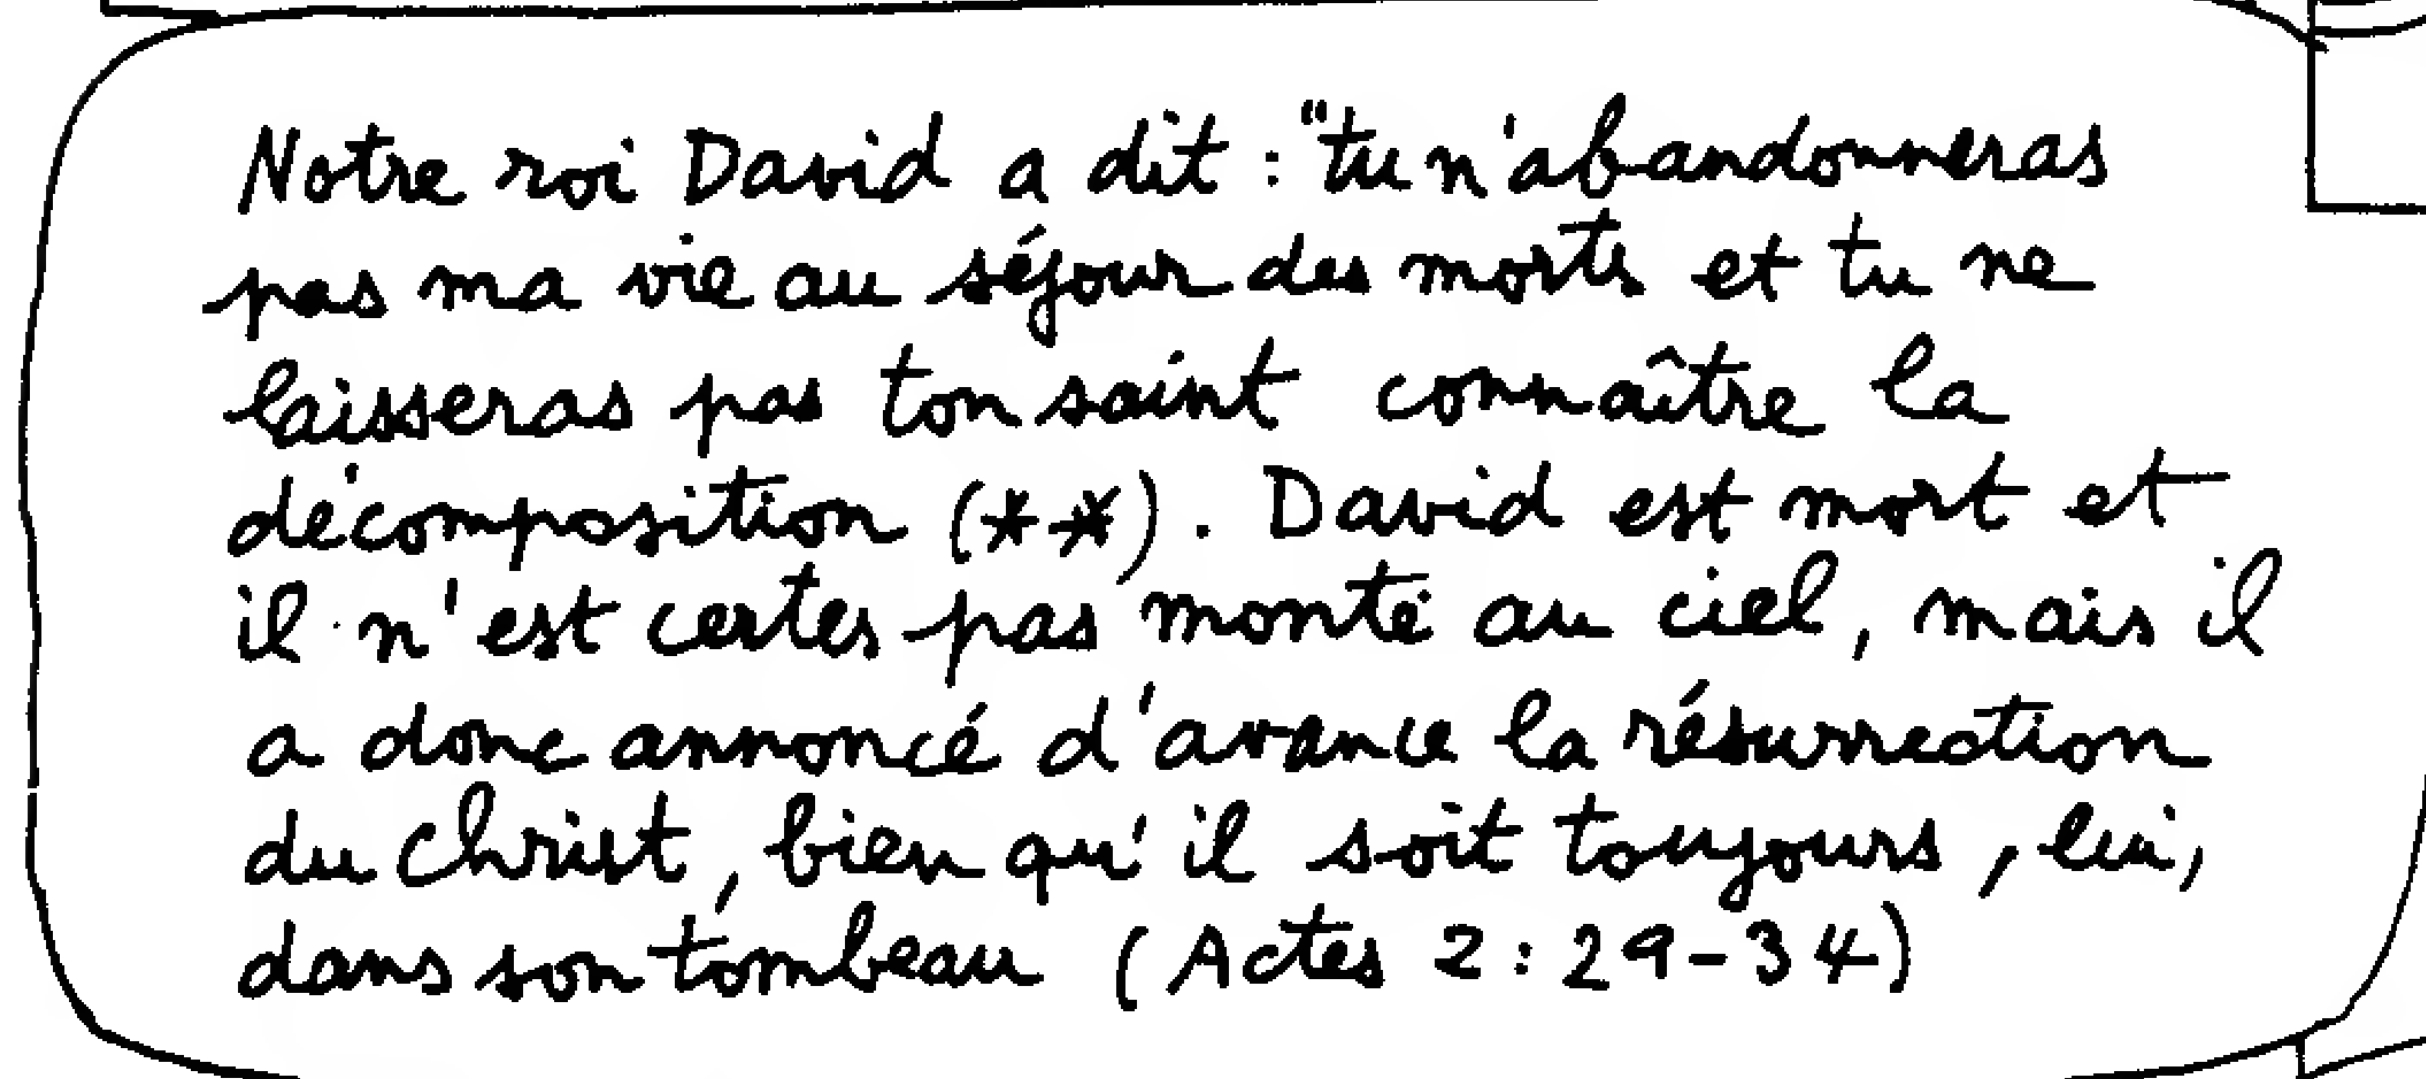 Notre roi David a dit : "tu n'abandonneras
pas ma vie au séjour des morts et tu ne
laisseras pas ton saint connaître la
décomposition (**). David est mort et
il n'est certes pas monté au ciel, mais il
a donc annoncé d'avance la résurrection
du Christ, bien qu'il soit toujours, lui,
dans son tombeau (Actes 2:29-34)